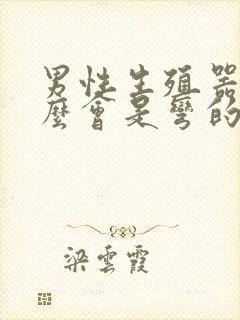 男性生殖器
麼會是彎的
梁雲霞